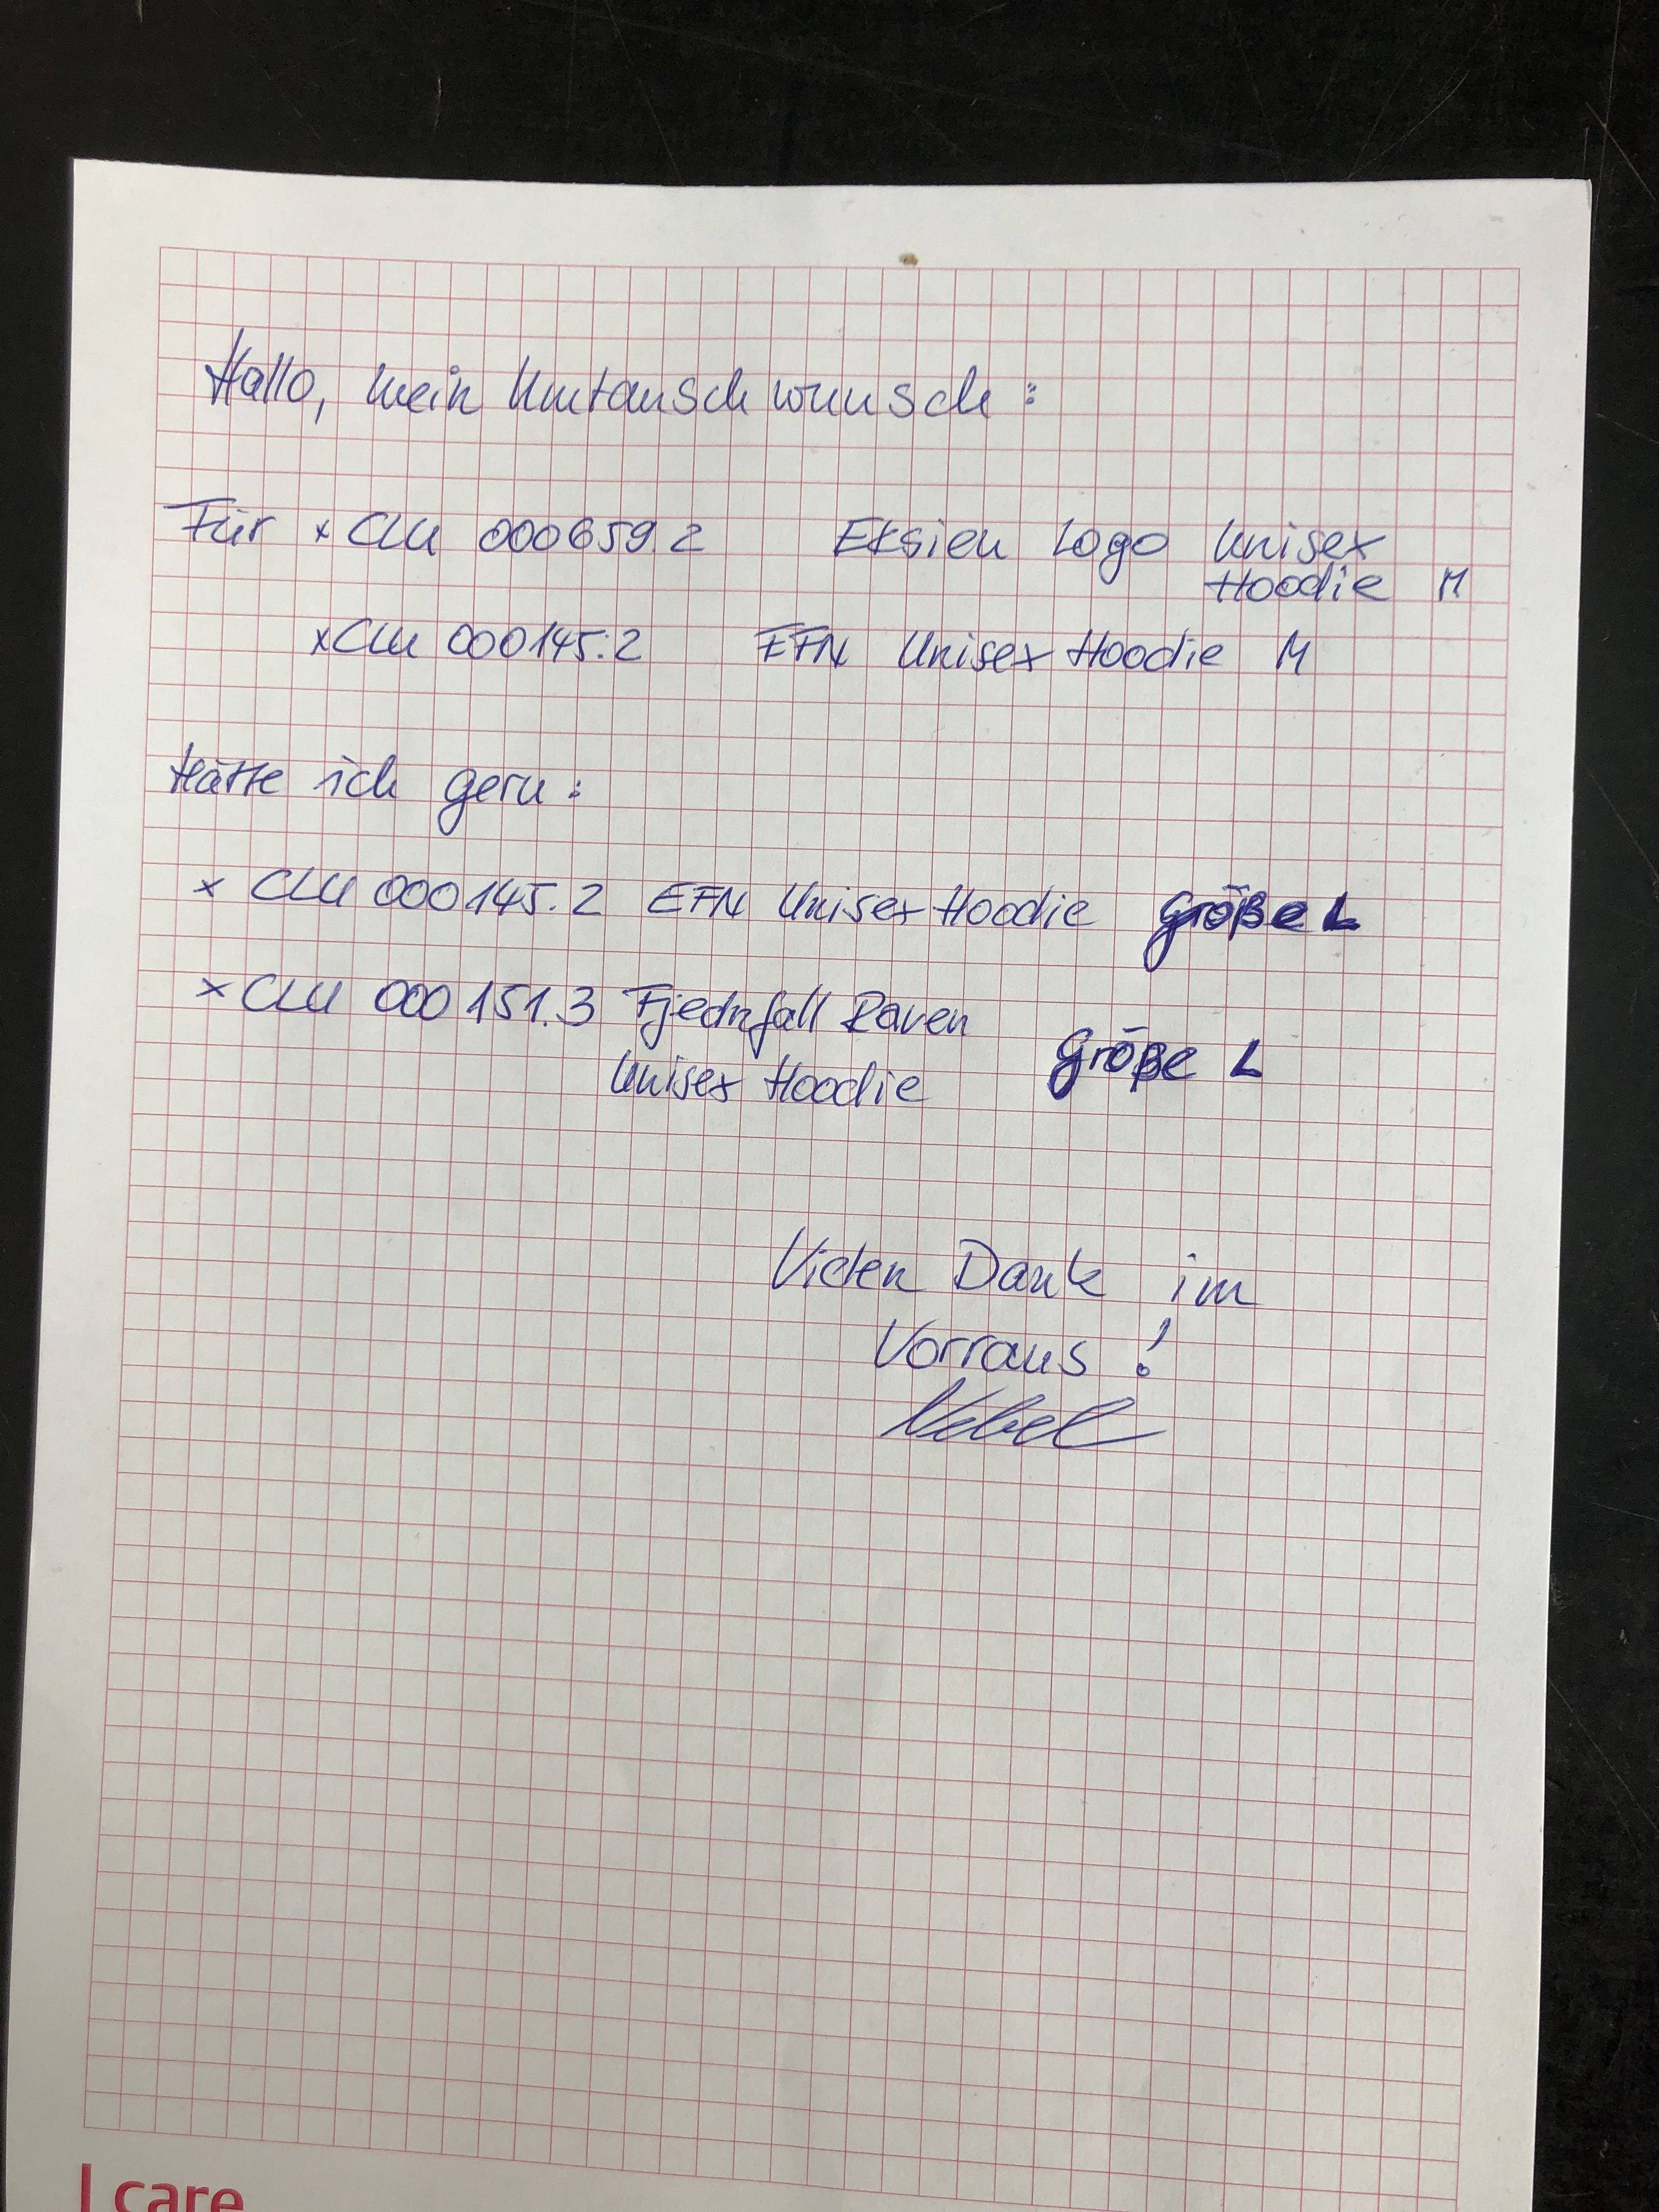 Hallo, mein Umtauschwunsch:
Für x CLU 000659.2 Eksien Logo Unisex
Hoodie M
x CLU 000145.2 EFN Unisex Hoodie M
Hätte ich gern:
x CLU 000145.2 EFN Unisex Hoodie Größe L
x CLU 000151.3 Fjednfall Raven
Unisex Hoodie Größe L
Vielen Dank im
Vorraus!
Nebel
I care